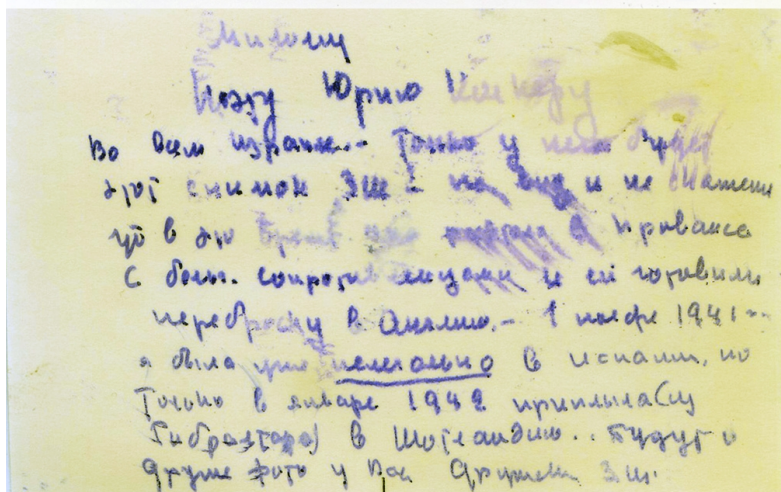 Милому
Поэту Юрию
Во всем израиле... Только у него будет
этот снимок ЭШ - на вид и не скажешь
что в это время работала в Провансе
С больш. сопротивленцами и ей готовили
переброску в Англию. - 1 ноября 1941...
я была уже нелегально в Испании, но
Только в январе 1942 приплыла (из
Гибралтара) в Шотландию.. Будут и
другие фото у Вас Дружески ЭШ.